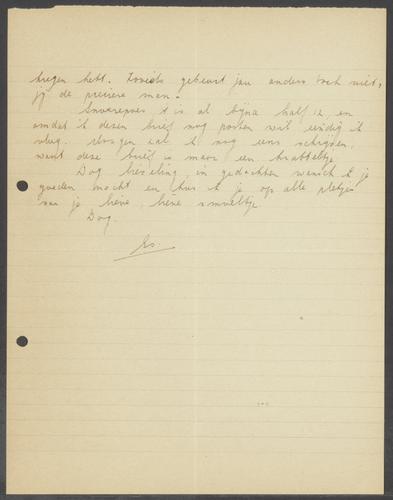 tregen hebt. Zooiets gebeurt jou anders toch niet,
jij de precieze man.
het is al bijna half 12, en
omdat ik dezen brief nog posten wil eindig ik
vlug. Morgen zal ik nog eens schrijven,
want deze brief is maar een krabbeltje.
Dag lieveling, in gedachten wensch ik je
goeden nacht en kus ik je op alle plekjes
van je lieve, lieve smoeltje.
Dag.